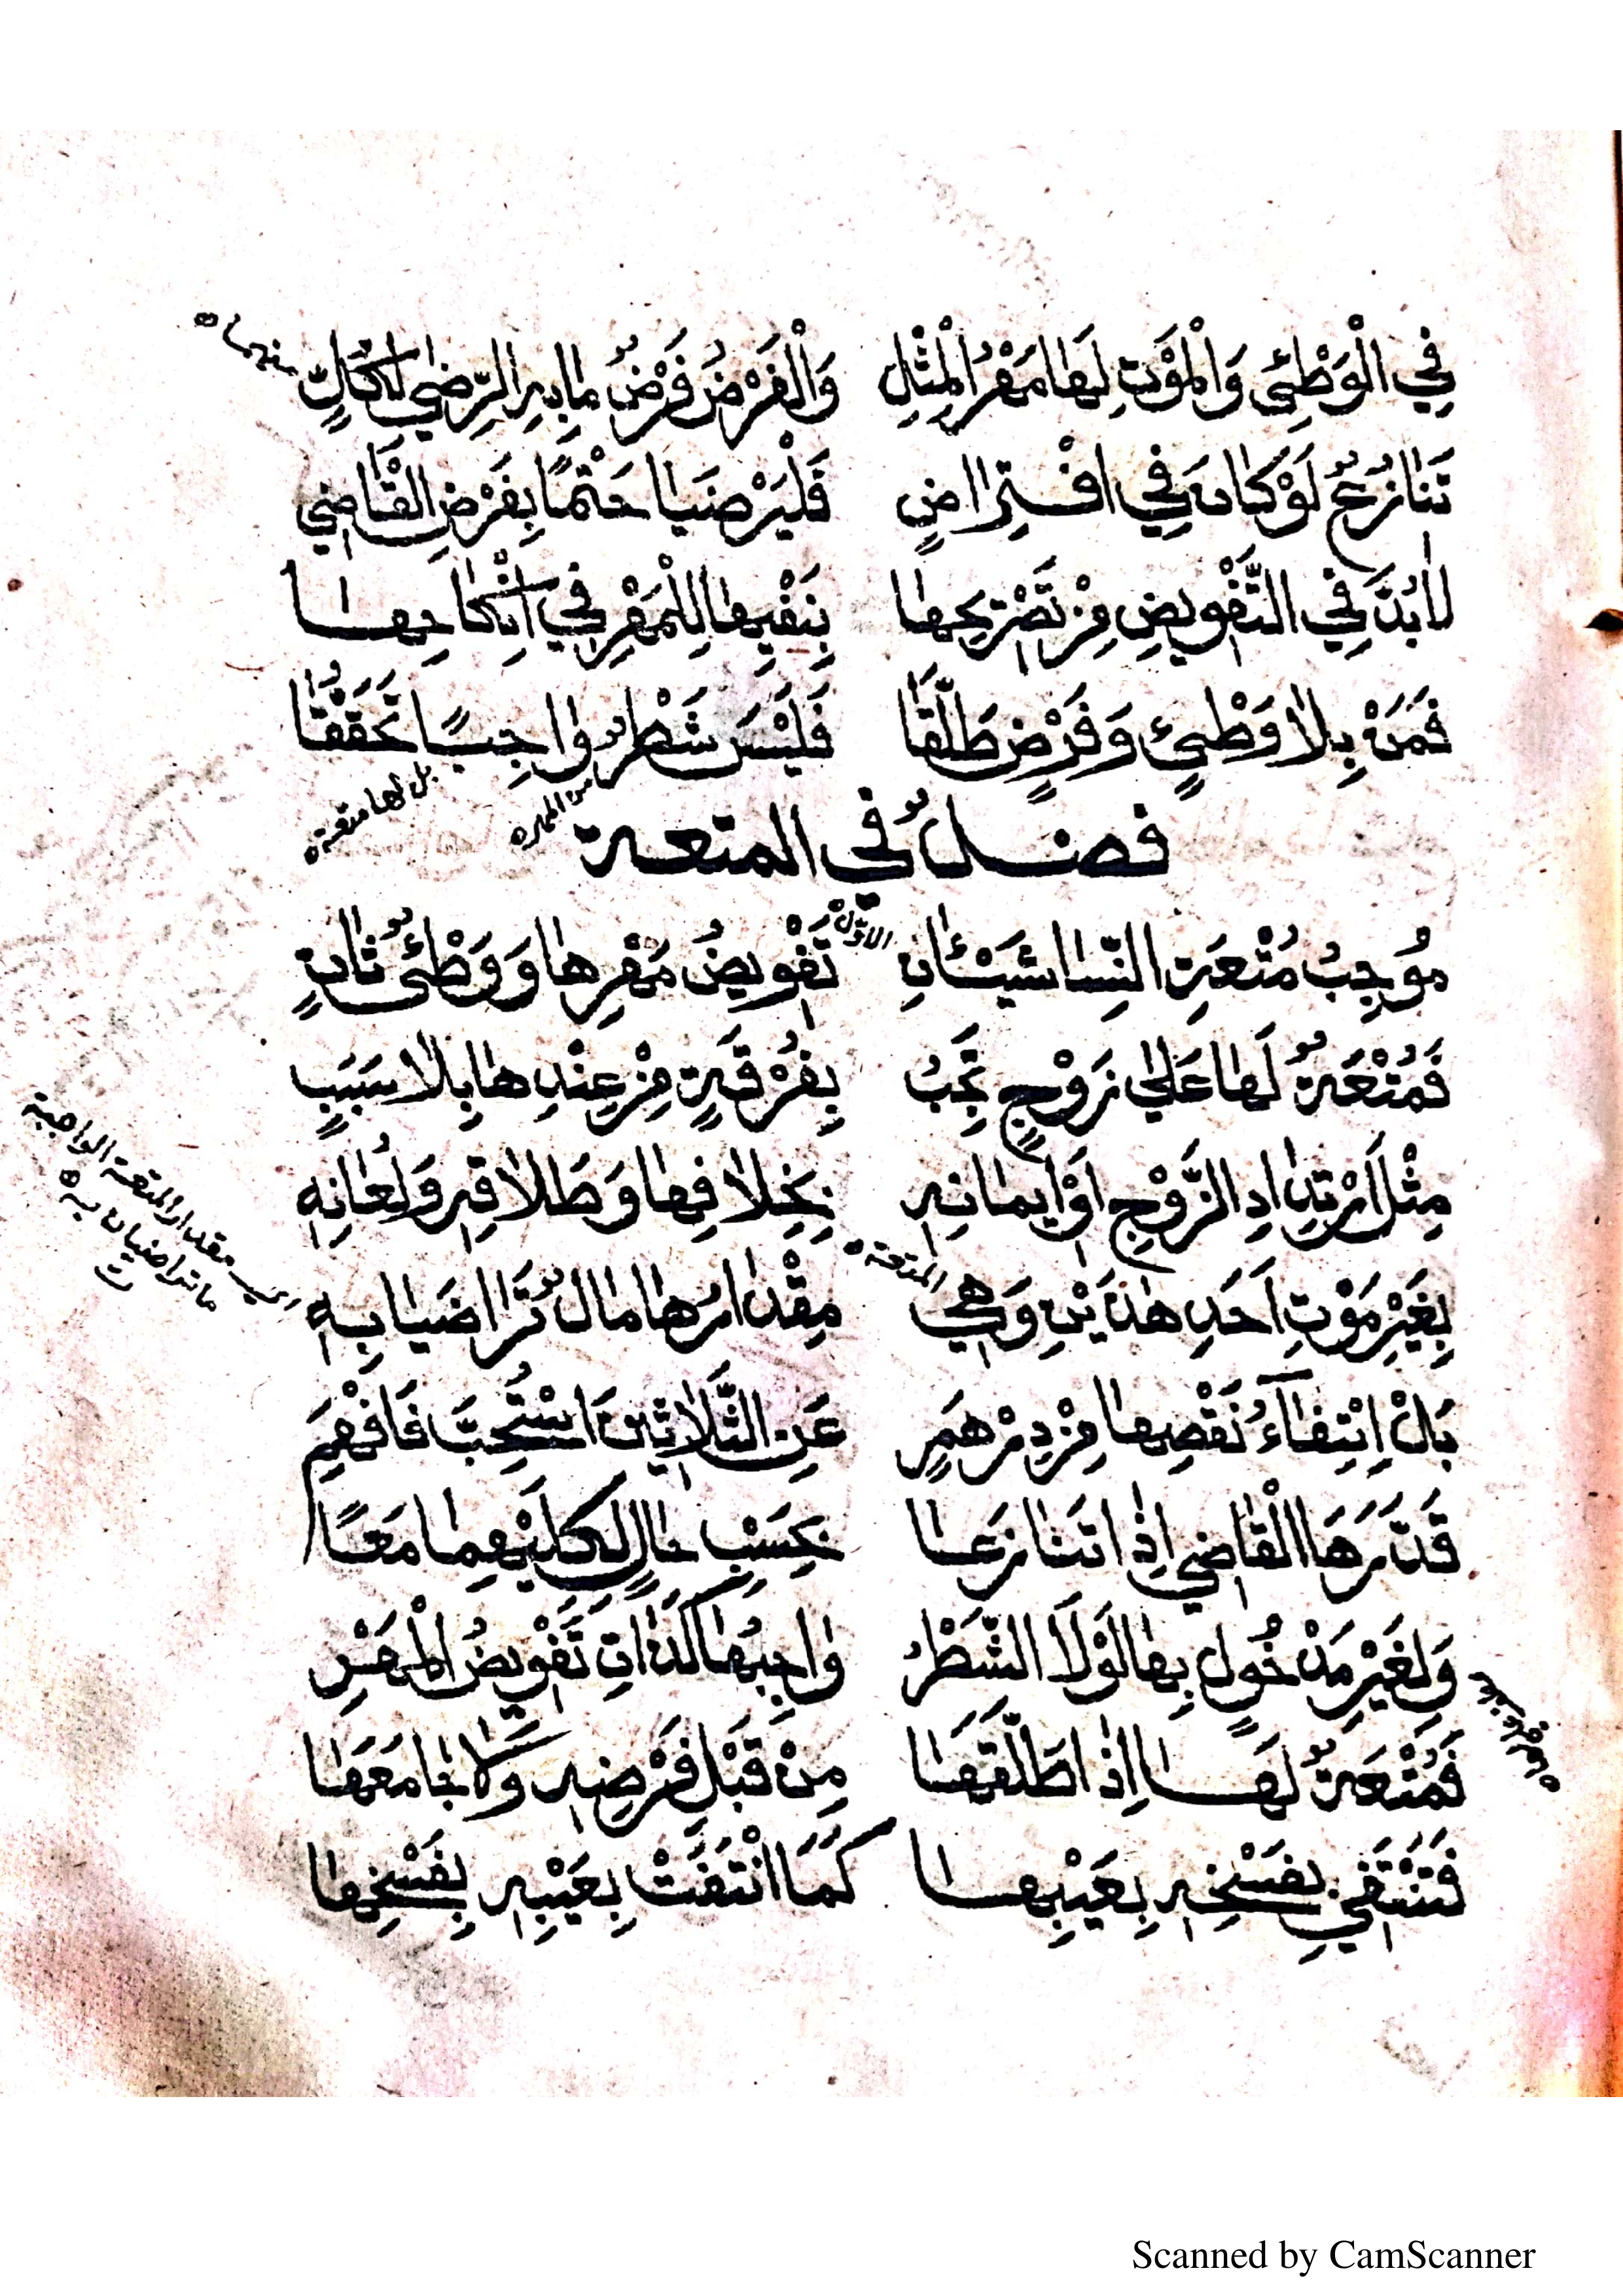 فِي الْوَطْئِ وَالْمَوْتِ لَهَا مَهْرُ الْمِثْلِ وَالْفَرْضُ فَرْضُ مَا بِهِ الرِّضَى لِكُلٍّ
منهما
تَنَازُعٌ لَوْ كَانَ فِي افْتِرَاضٍ فَلْيَرْضَيَا حَتْمًا بِفَرْضِ الْقَاضِي
لَابُدَّ فِي التَّفْوِيضِ مِنْ تَصْرِيحِهَا بِنَفْيِهَا لِلْمَهْرِ فِي انْكَاحِهَا
فَمَنْ بِلَا وَطْئٍ وَفَرْضٍ طَلَّقَا فَلَيْسَ شَطْرٌ وَاجِبًا تَحَقَّقَا
من المهر
بل لها متعة
فصلٌ في المتعة
مُوجِبُ مُتْعَةِ النِّسَا شَيْئَانِ تَفْوِيضُ مَهْرِهَا وَوَطْئٌ ثَانٍ
الاوّل
فَمُتْعَةٌ لَهَا عَلَى زَوْجٍ تَجِبُ بِفُرْقَةٍ مِنْ عِنْدِهَا بِلَا سَبَبٍ
مِثْلَ ارْتِدَادِ الزَّوْجِ اَوْ ايمَانِهِ بِخِلَافِهَا وَطَلَاقِهِ وَلِعَانِهِ
بِغَيْرِ مَوْتِ اَحَدِ هٰذَيْنِ وَهِي مِقْدَارُهَا مَالٌ تَرَاضَيَا بِهِ
المتعة
اي مقدار المتعة الواجبة
ما تراضيان به
بَلْ اِنْتِفَاءُ نَقْصِهَا مِنْ دِرْهَمٍ عَنِ الثَّلَاثِينَ اسْتُحِبَّ فَافْهَمِ
قَدَّرَهَا الْقَاضِي اِذَا تَنَازَعَا بِحَسَبِ حَالٍ لِكِلَيْهِمَا مَعًا
وَلِغَيْرِ مَدْخُولٍ بِهَا لَوْلَا الشَّطْرُ وَاجِبُهَا كَذَاتِ تَفْوِيضُ الْمَهْرِ
فَمُتْعَةٌ لَهَا اِذَا طَلَّقَهَا مِنْ قَبْلِ فَرْضِهِ وَلَا جَامَعَهَا
فَتَنْتَفِي بِفَسْخِهِ بِعَيْبِهَا كَمَا انْتَفَتْ بِعَيْبِهِ بِفَسْخِهَا
Scanned by CamScanner